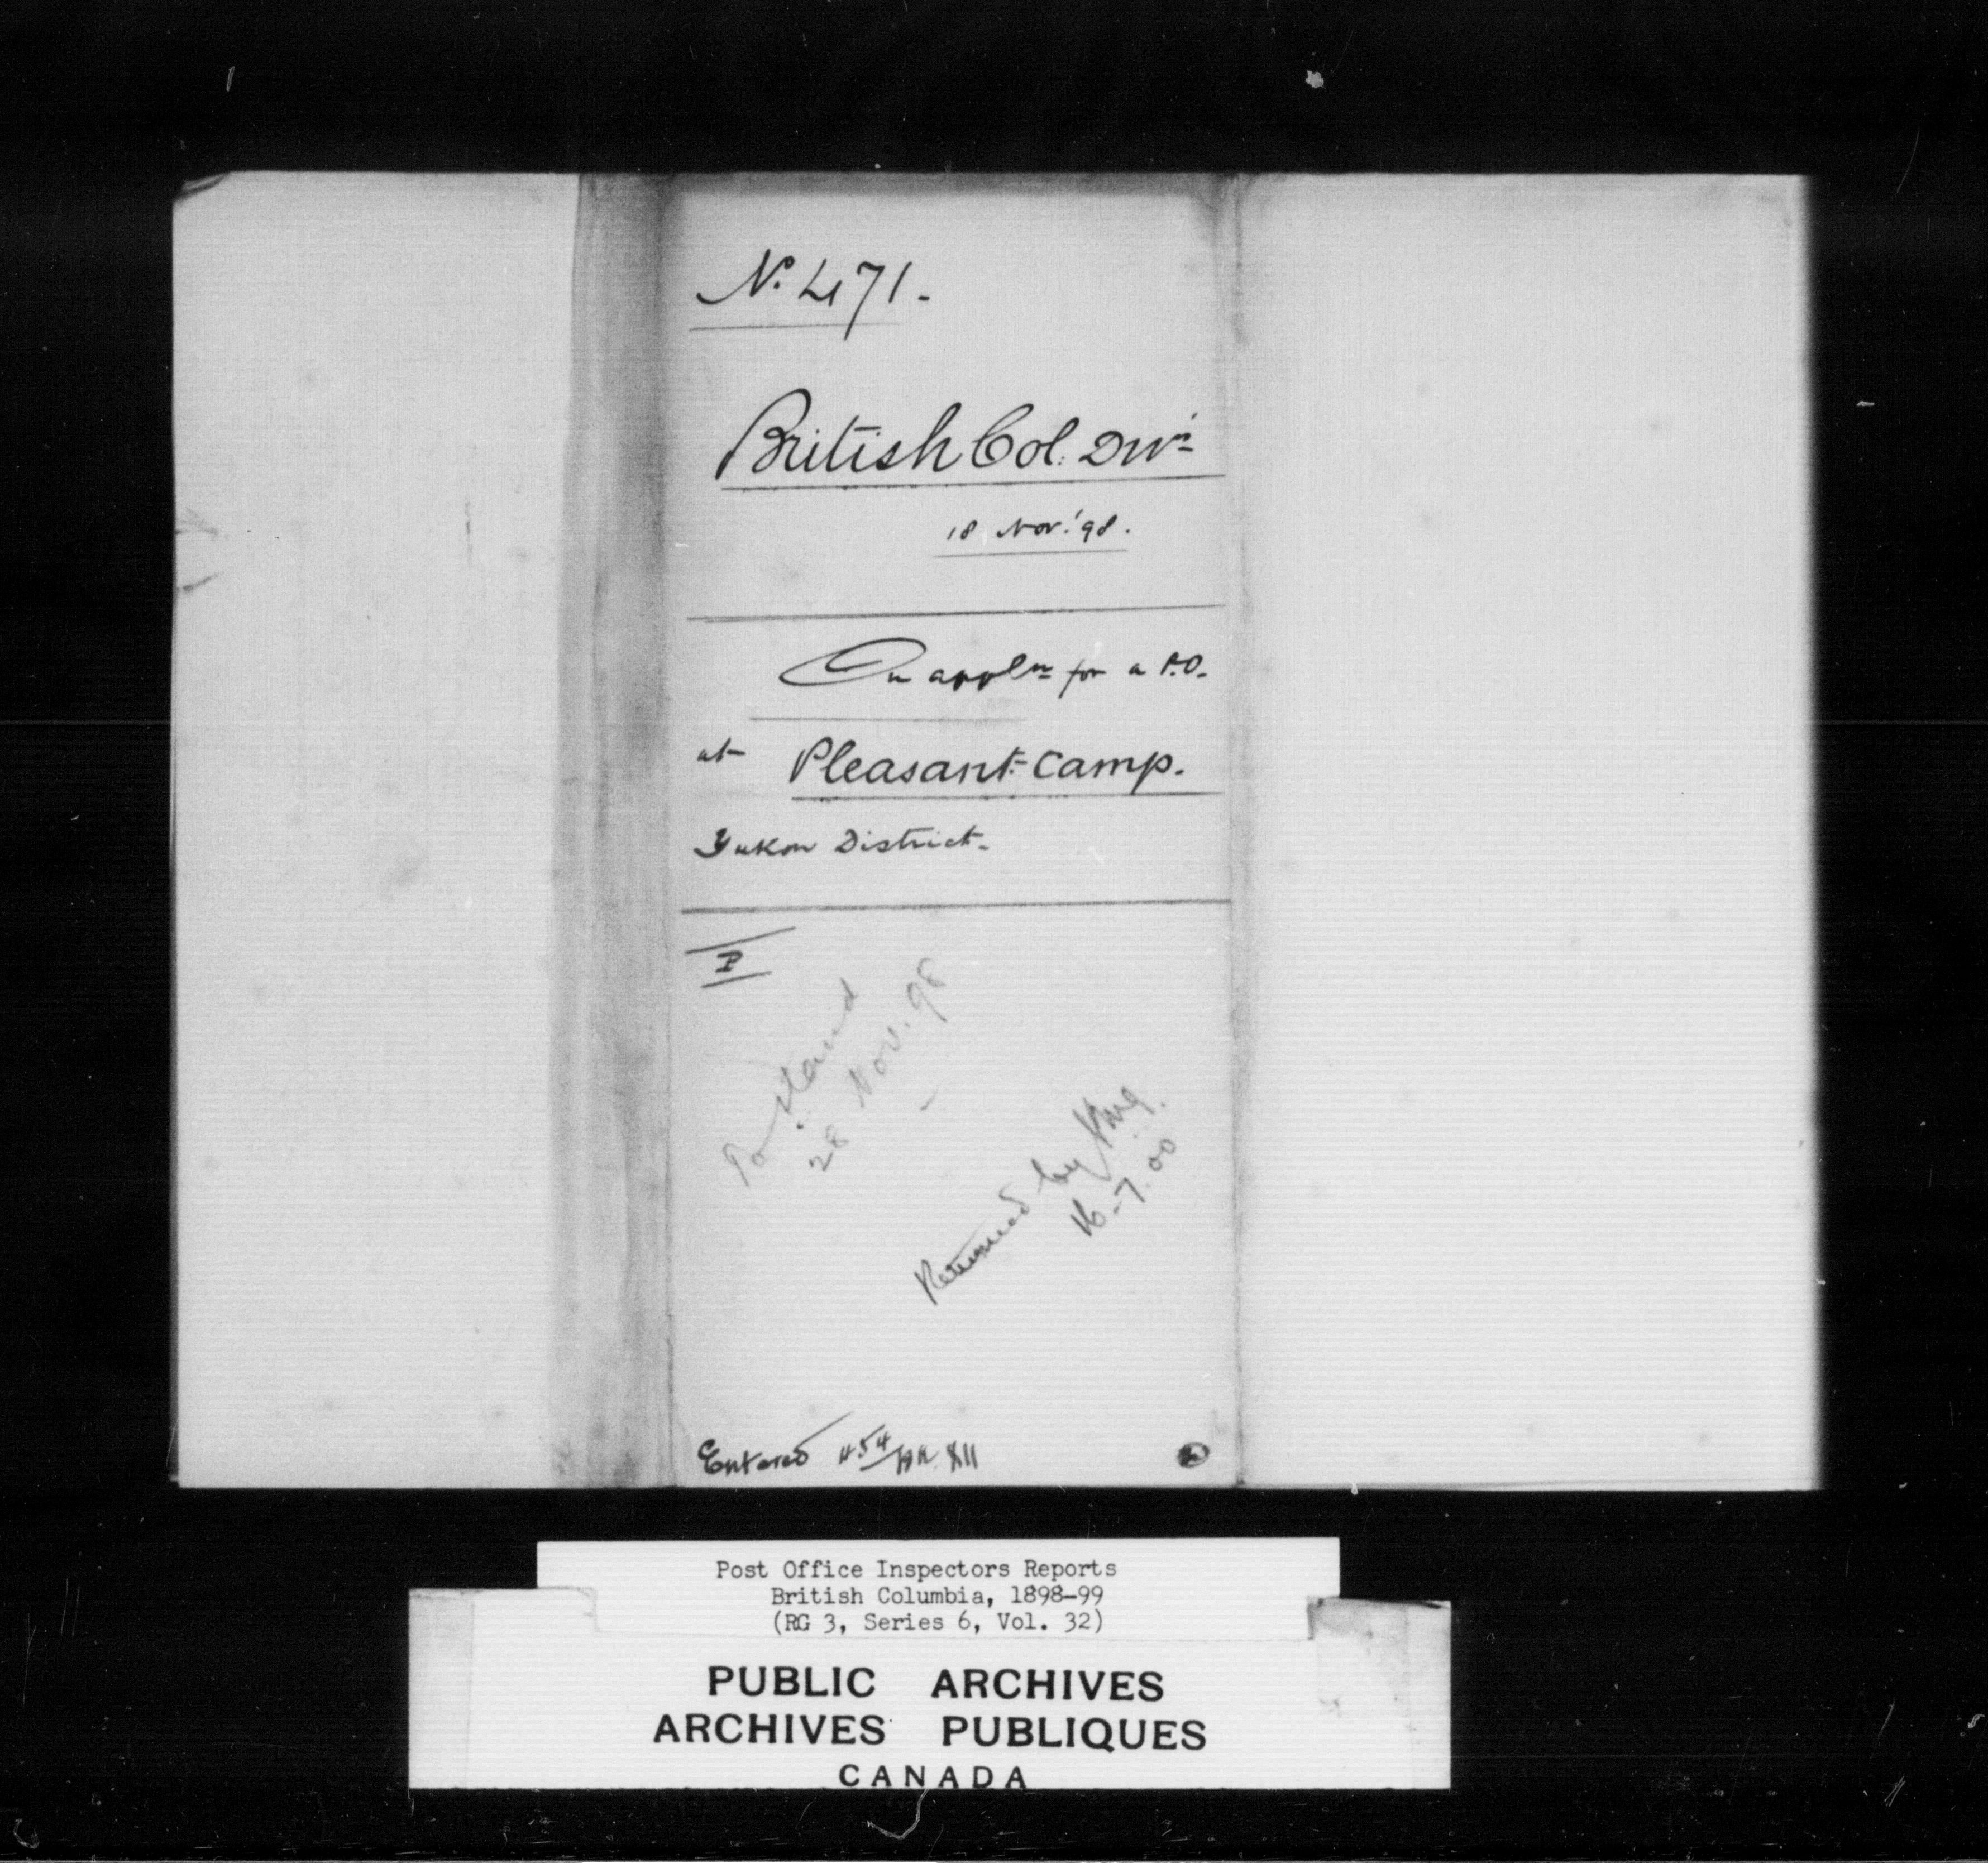 No. 471.
British Col. Divn
18 Nov. '98.
On appln for a P.O.
at Pleasant Camp.
Yukon District.
P
To stand
28 Nov. 98
Returned by PMG.
16-7.00
Entered 454
Post Office Inspectors Reports
British Columbia, 1898-99
(RG 3, Series 6, Vol. 32)
PUBLIC ARCHIVES
ARCHIVES PUBLIQUES
CANADA